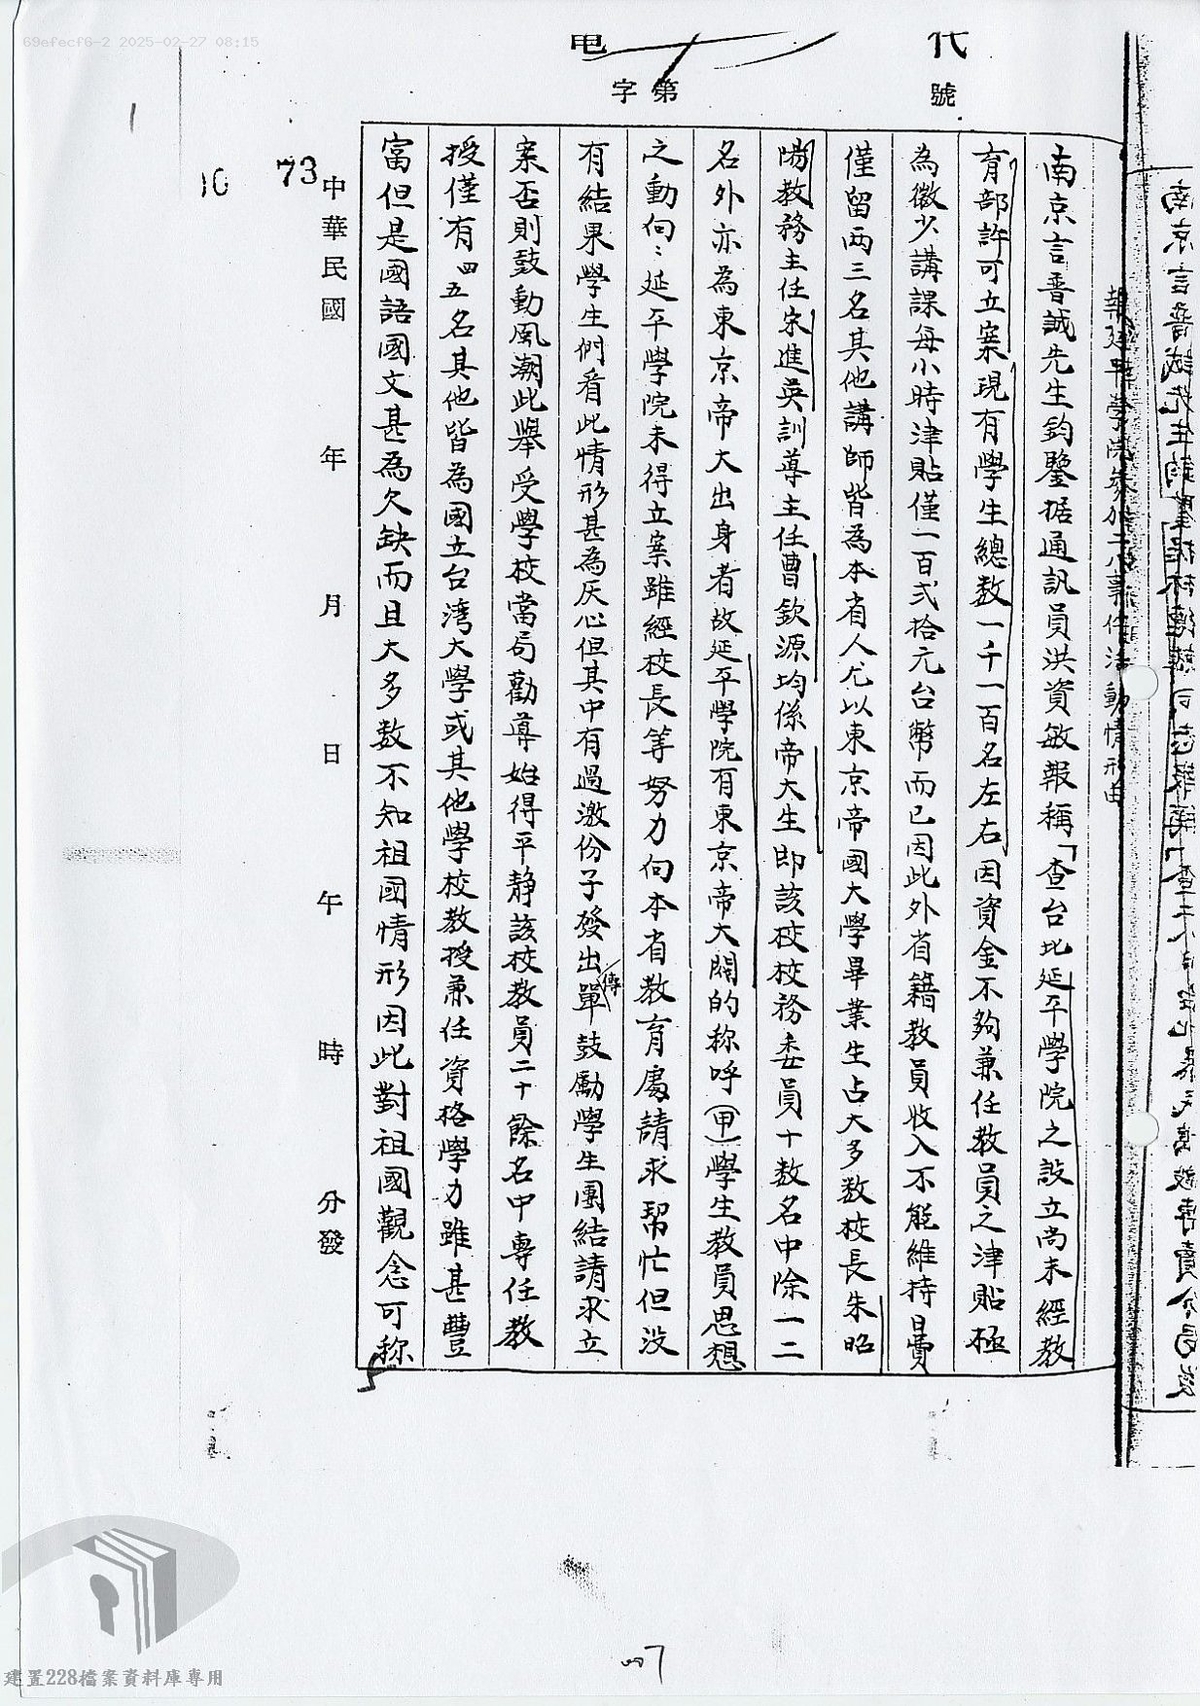 69efecf6-2 2025-02-27 08:15
代電
字第 號
報延平學院參加二二八事件活動情形由
南京言普誠先生鈞鑒据通訊員洪資敏報稱「查台北延平學院之設立尚未經教
育部許可立案現有學生總数一千一百名左右因資金不夠兼任教員之津貼極
為微少講課每小時津貼僅一百弍拾元台幣而已因此外省籍教員收入不能維持日費
僅留両三名其他講師皆為本省人尤以東京帝國大學畢業生占大多数校長朱昭
陽教務主任宋進英訓導主任曹欽源均係帝大生即該校校務委員十数名中除一二
名外亦為東京帝大出身者故延平學院有東京帝大閥的称呼(甲)學生教員思想
之動向:延平學院未得立案雖經校長等努力向本省教育處請求幇忙但没
有結果學生們看此情形甚為灰心但其中有過激份子發出傳單鼓勵學生團結請求立
案否則鼓動風潮此舉受學校當局勸導始得平静該校教員二十餘名中專任教
授僅有四五名其他皆為國立台湾大學或其他學校教授兼任資格學力雖甚豐
富但是國語國文甚為欠缺而且大多数不知祖國情形因此對祖國觀念可称
中華民國 年 月 日 午 時 分發
73
10
建置228檔案資料庫專用